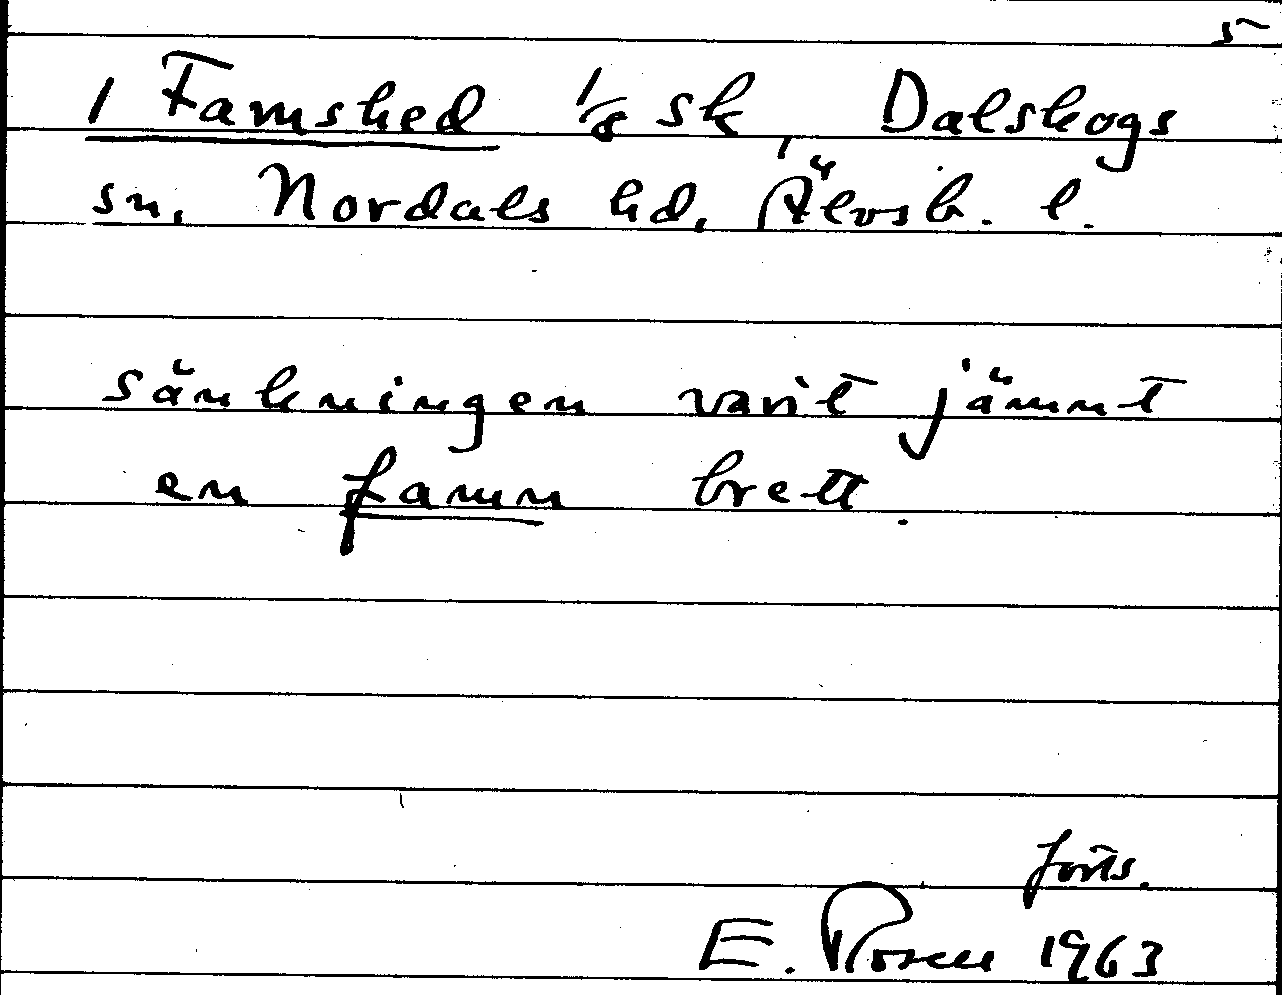 5
1 Famshed 1/8 sk, Dalskogs
sn, Nordals hd, Älvsb. l.
sänkningen varit jämnt
en famn brett.
forts.
E. Rosen 1963